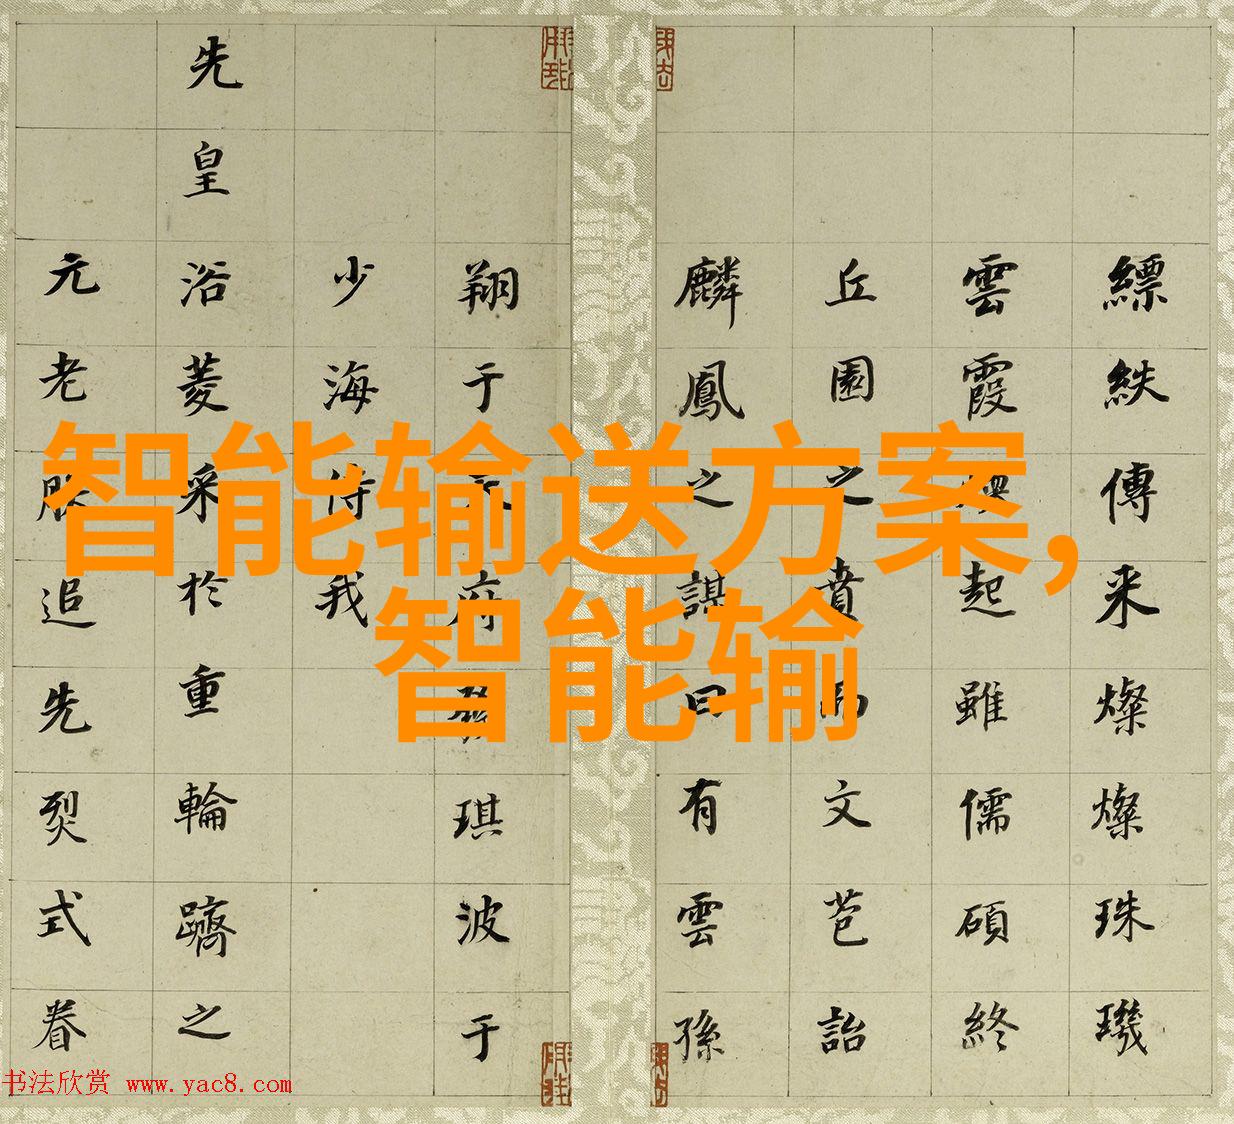 縹帙傳来燦燦珠璣
雲霞起雖儒碩終
丘園之賁文芭詒
麟鳳之謀曰有雲孫
翔于府琪波于
少海侍我
先皇浴菱采於重輪躋之
元老服追先烈式眷
智能输送方案，
智能输
书法欣赏 www.yac8.com